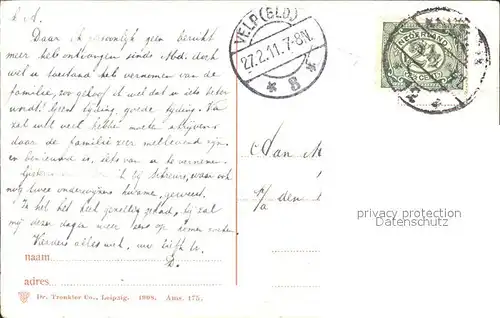 L. A.
Daar ik persoonlijk geen bericht
meer heb ontvangen sinds Md. doch
wel u toestand heb vernomen van de
familie, zoo geloof ik wel dat u iets beter
wordt! Geen tijding, goede tijding. Na
zal wel veel hebben moeten schrijven
daar de familie zeer metlevend zijn
en benieuwd is, iets van u te vernemen.
Gisteren ik bij Scheurs, waar ook
nog twee onderwijzers kwamen, geweest.
Ik heb het heel gezellig gehad, hij zal
mij dezer dagen weer eens op komen zoeken.
Verders alles wel, uw liefh. br.
naam
adres
Dr. Trenkler Co., Leipzig. 1908. Ams. 175.
VELP (GLD.)
27.2.11.7-8N.
* 8 *
NEDERLAND
2½
CENT
Aan M
privacy protection
Datenschutz